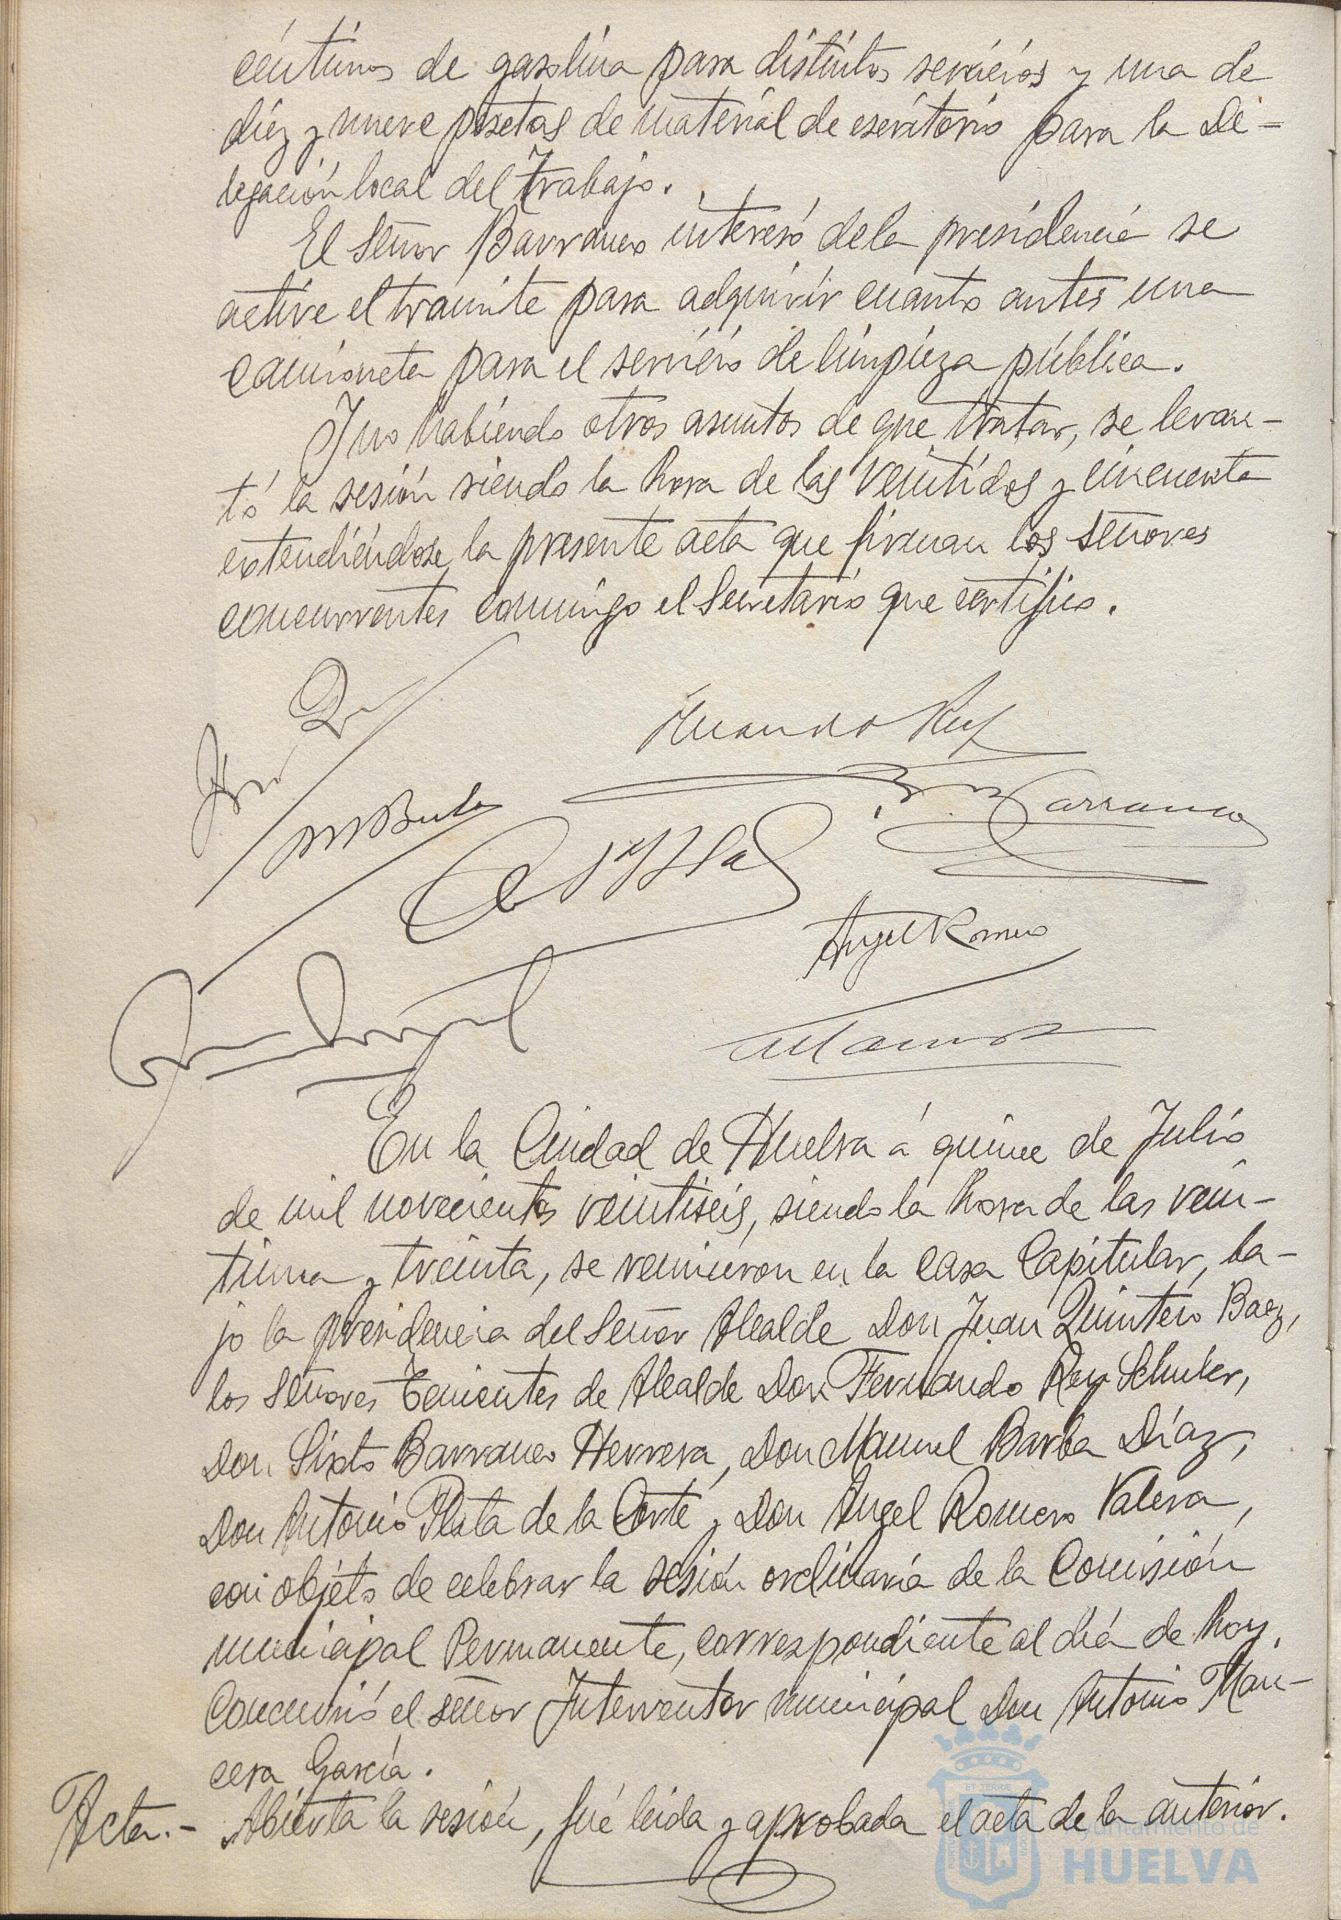 céntimos de gasolina para distintos servicios y una de
diez y nueve pesetas de material de escritorio para la De-
legación local del Trabajo.
El Señor Barranco interesó de la presidencia se
active el trámite para adquirir cuanto antes una
camioneta para el servicio de limpieza pública.
Y no habiendo otros asuntos de que tratar, se levan-
tó la sesión siendo la hora de las veintidos y cincuenta
extendiéndose la presente acta que firman los señores
concurrentes conmigo el Secretario que certifico.
Fernando Rey
Barranco
M Barba
A Plata
Angel Romero
A Mancera
En la Ciudad de Huelva á quince de Julio
de mil novecientos veintiseis, siendo la hora de las vein-
tiuna y treinta, se reunieron en la Casa Capitular, ba-
jo la presidencia del Señor Alcalde Don Juan Quintero Baez,
los Señores Tenientes de Alcalde Don Fernando Rey Schuler,
Don Sixto Barranco Herrera, Don Manuel Barba Díaz,
Don Antonio Plata de la Corte y Don Angel Romero Valera,
con objeto de celebrar la sesión ordinaria de la Comisión
municipal Permanente, correspondiente al día de hoy.
Concurrió el señor Interventor municipal Don Antonio Man-
cera García.
Acta.- Abierta la sesión, fué leida y aprobada el acta de la anterior.
Ayuntamiento de
HUELVA